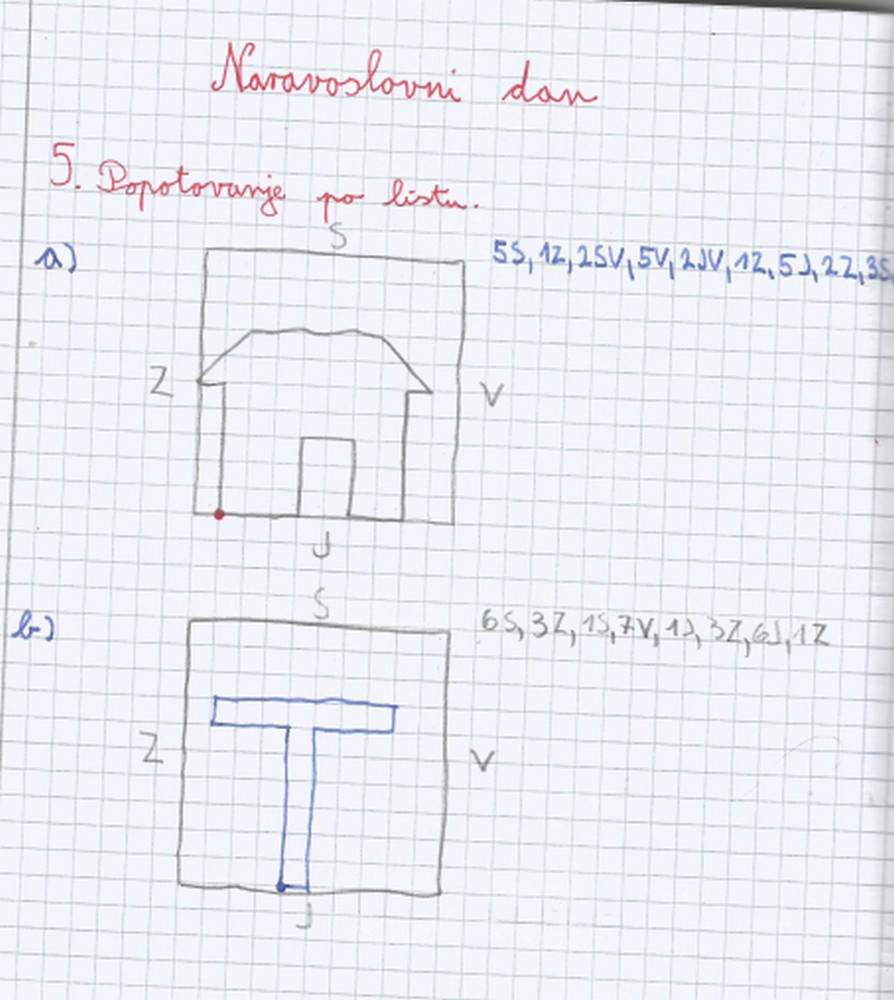 Naravoslovni dan
5. Popotovanje po listu.
S
a) 5S, 1Z, 2SV, 5V, 2JV, 1Z, 5J, 2Z, 3S,
Z V
J
S
b) 6S, 3Z, 1S, 7V, 1J, 3Z, 6J, 1Z
Z V
J